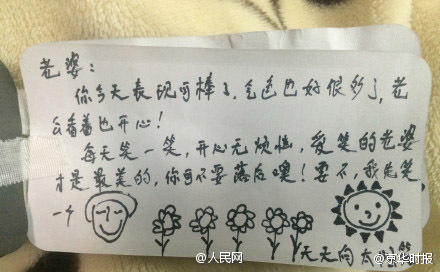 老婆:
你今天表现可棒了,气色也好很多了,老
公看着也开心!
每天笑一笑,开心无烦恼,爱笑的老婆
才是最美的,你可不要落后噢!要不,我先笑
一个
天天向太阳笑
@人民网
@京华时报